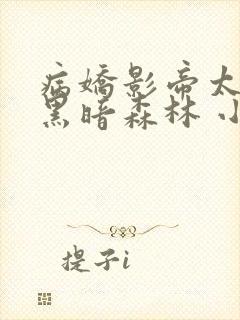 病嬌影帝太
黑暗森林 小
提子i